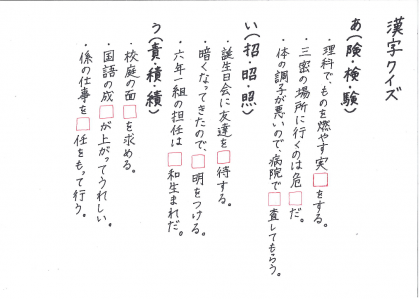 漢字クイズ
あ(険・検・験)
・理科で、ものを燃やす実□をする。
・三密の場所に行くのは危□だ。
・体の調子が悪いので、病院で□査してもらう。
い(招・昭・照)
・誕生日会に友達を□待する。
・暗くなってきたので、□明をつける。
・六年一組の担任は□和生まれだ。
う(責・積・績)
・校庭の面□を求める。
・国語の成□が上がってうれしい。
・係の仕事を□任をもって行う。